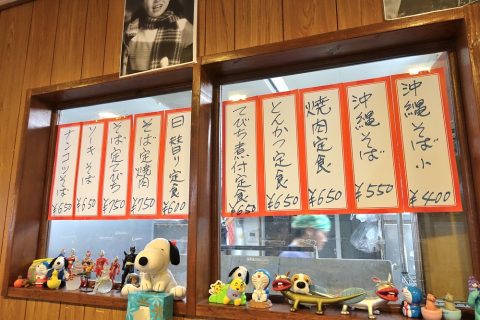 沖縄そば小 ¥400
沖縄そば ¥550
焼肉定食 ¥650
とんかつ定食 ¥650
てびち煮付定食 ¥650
日替り定食 ¥600
そば定焼肉 ¥750
そば定てびち ¥750
ソーキそば ¥650
ナンコツそば ¥650